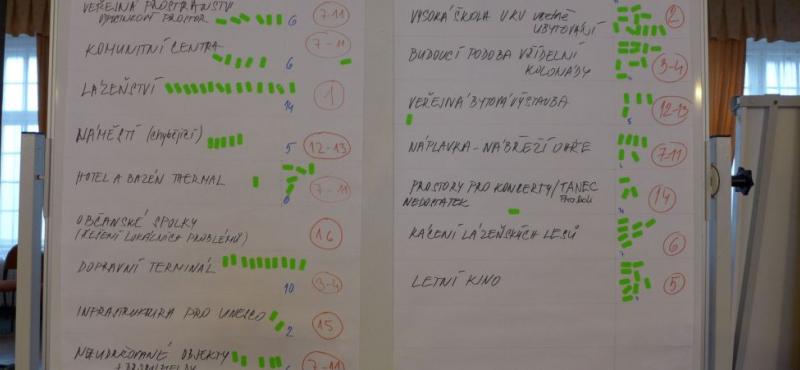 VEŘEJNÁ PROSTRANSTVÍ
6
7-11
KOMUNITNÍ CENTRA
6
7-11
LÁZEŇSTVÍ
14
1
NÁMĚSTÍ (chybějící)
5
12-13
HOTEL A BAZÉN THERMAL
6
7-11
OBČANSKÉ SPOLKY
(ŘEŠENÍ LOKÁLNÍCH PROBLÉMŮ)
16
DOPRAVNÍ TERMINÁL
10
3-4
INFRASTRUKTURA PRO UNESCO
2
15
NEUDRŽOVANÉ OBJEKTY
6
7-11
VYSOKÁ ŠKOLA V KV včetně
UBYTOVÁNÍ
2
BUDOUCÍ PODOBA VŘÍDELNÍ
KOLONÁDY
3-4
VEŘEJNÁ BYTOVÁ VÝSTAVBA
5
12-13
NÁPLAVKA - NÁBŘEŽÍ OHŘE
7-11
PROSTORY PRO KONCERTY/TANEC
NEDOSTATEK
14
KÁCENÍ LÁZEŇSKÝCH LESŮ
6
LETNÍ KINO
5